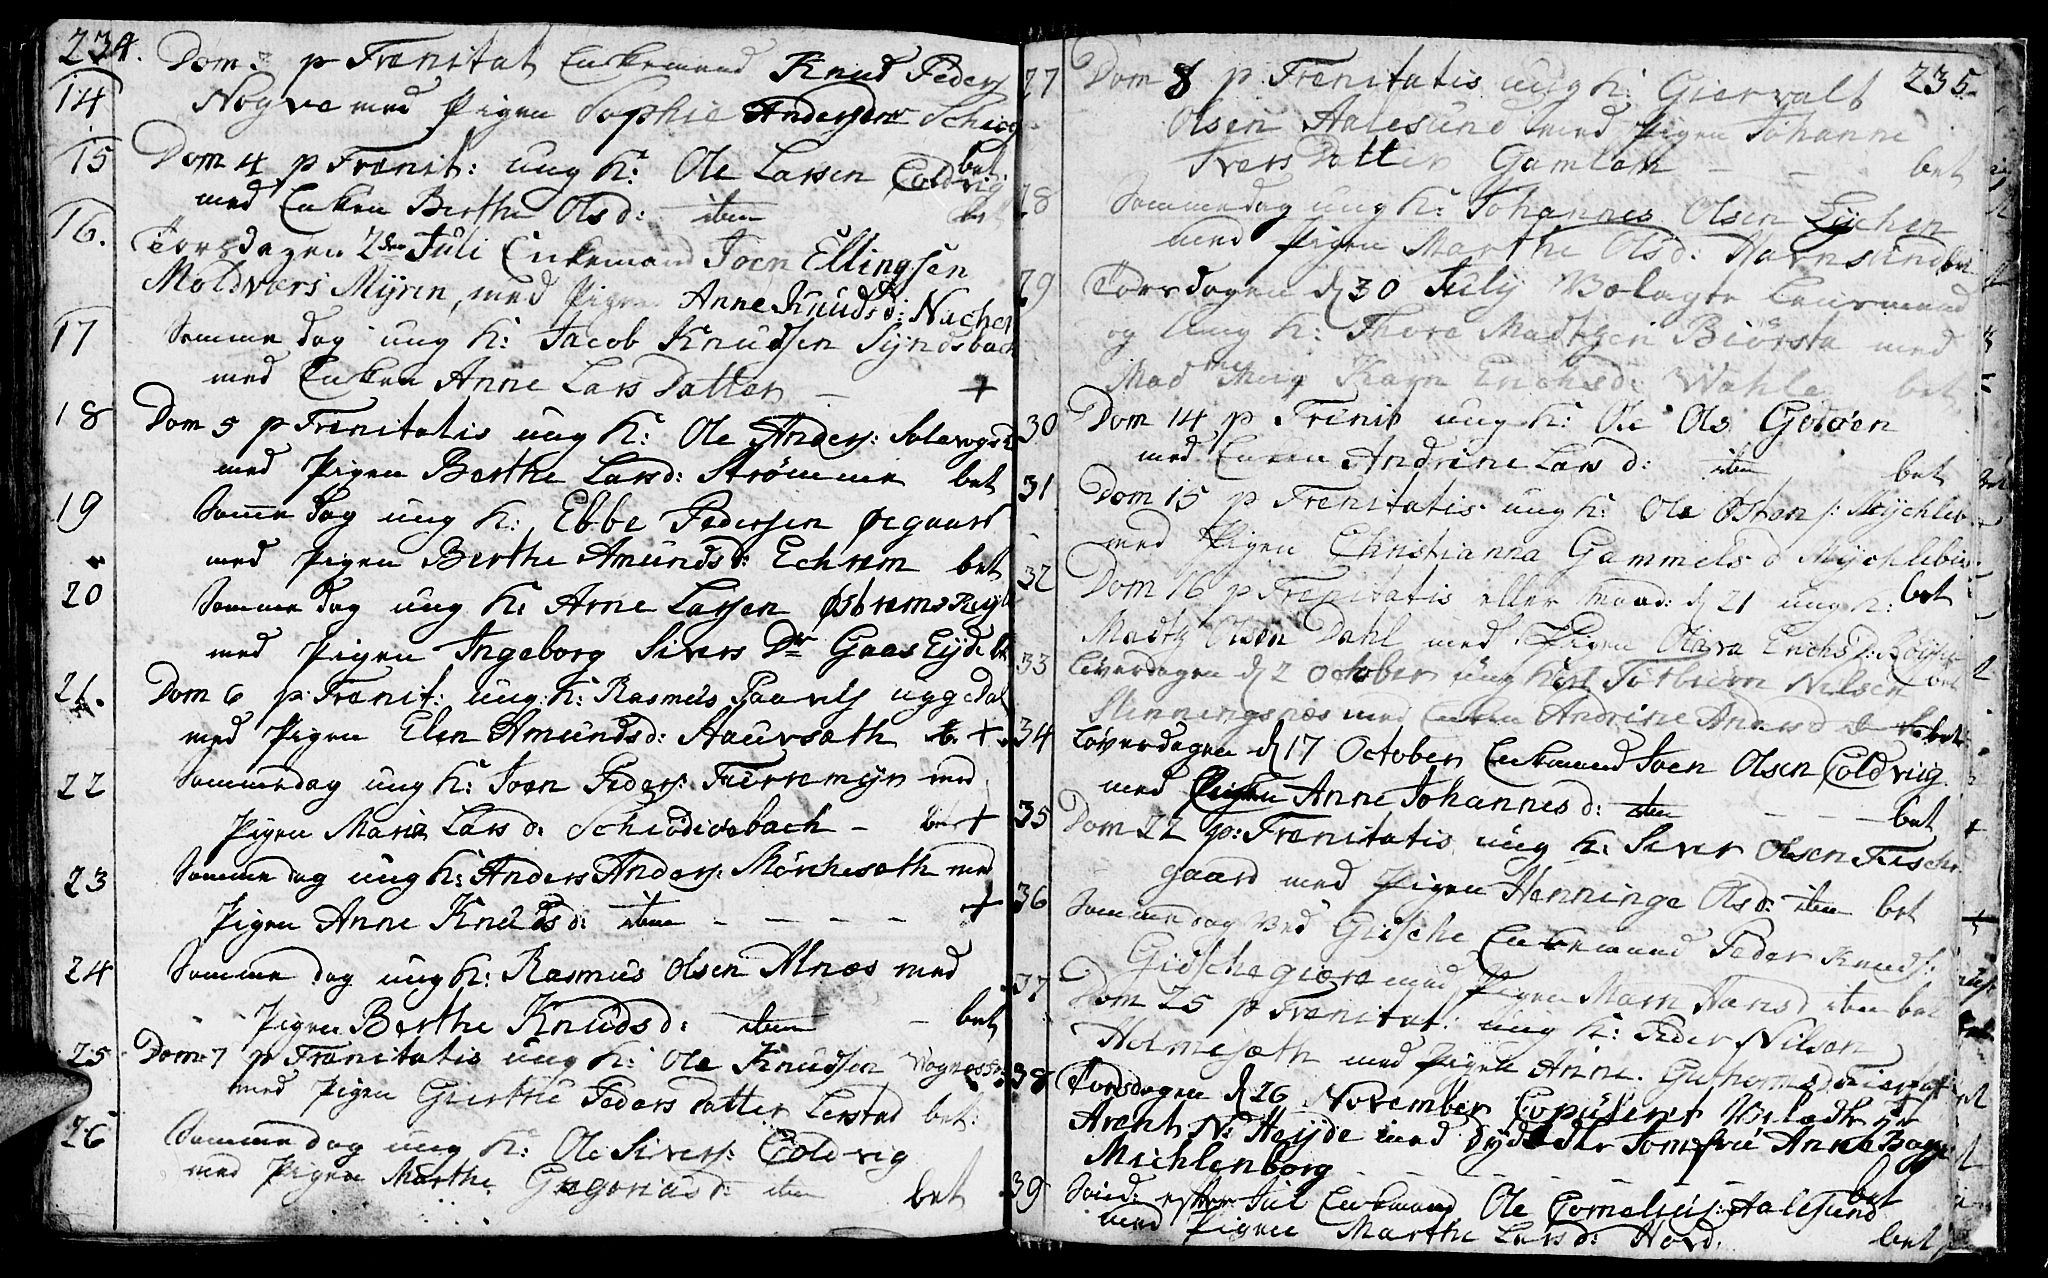 234.
14 Dom 3 p Trenitat Enkemand Knud Peders
Nøgve med Pigen Sophie Andersdr
15 Dom 4 p Trenit: ung K: Ole Larsen Coldvig bet
med Enken Berthe Olsd: item bet
16. Torsdagen 2den Juli Enkemand Joen Ellingsen
Moldvers Myren, med Pigen Anne Knudsd: Nacken
17 Samme dag ung K: Jacob Knudsen Syndsbach
med Enken Anne Lars Datter – +
18 Dom 5 p Trenitatis ung K: Ole Anders:
med Pigen Berthe Larsd: Strømme bet
19 Samme dag ung K: Ebbe Pedersen Øegaard
med Pigen Berthe Amundsd: Echrem bet
20 Samme dag ung K: Arne Larsen
med Pigen Ingeborg Sivers Dr Gaas Eyde
21. Dom 6 p: Trenit: ung K: Rasmus Paavels uggedal
med Pigen Elen Amundsd: Staursæth +
22 Sammedag ung K: Joen Peders: Tuerremyr med
Pigen Maria Larsd: – bet +
23 Samme dag ung K: Anders Anders: Mørchesæth med
Pigen Anne Knudsd: item – – – – +
24 Samme dag ung K: Rasmus Olsen Alnæs med
Pigen Berthe Knudsd: item – bet
25 Dom: 7 p Trenitatis ung K: Ole Knudsen
med Pigen Giertrue Peders Datter Lerstad bet:
26 Samme dag ung K: Ole Sivers: Coldvig
med Pigen Marthe Gregoriasd: item bet
235.
27 Dom 8 p Trenitatis ung K: Giervalt
Olsen Aalesund med Pigen Johanne
Ivers Datter Gamlem – – bet
28 Sammedag ung K: Johannes Olsen Eychen
med Pigen Marthe Olsd: Havnsund bet
29 Torsdagen d 30 July Welagte Lensmand
og Ung K: Thore Madtzen Biørsta med
Mad Karn Erichsd: Wahle bet
30 Dom 14 p Trenit ung K: Ole Ols Godøen
med Enken Andrine Larsd: item bet
31 Dom 15 p Trenitatis ung K: Ole Osten s: Mychleb
med Pigen Christianna Gammelsd Mychlebu
32 Dom 16 p Trenitatis eller Maad: d 21 ung K: bet
Madtz Olsen Dahl med Pigen Olava Erichsd: bet
33 Løverdagen d 2 October ung Karl Torbiørn Nilsen
Slinningsnæs med Enken Andrine Andersd bet
34 Løverdagen d 17 October Enkemand Joen Olsen Coldvig
med Pigen Anne Johannesd: item – – – bet
35 Dom 22 p: Trenitatis ung K: Siver Olsen Fische
gaard med Pigen Henninge Olsd: item bet
36 Samme dag ved Giische Enkemand Peder Knuds:
Gidschegiære med Pigen Marn Hansd item bet
37 Dom 25 p Trenitat: ung K: Peder Nilsen
Holmesæth med Pigen Anne Guttormsd
38 Torsdagen d 26 November Copuleret
Arent N: Heyde med Dydædle Jomfrue Anne Bagge
Michlenborg – – – – bet
39 Sønd: efter Jul Enkemand Ole Cornelius: Aalesund
med Pigen Marthe Larsd: Hovd. bet